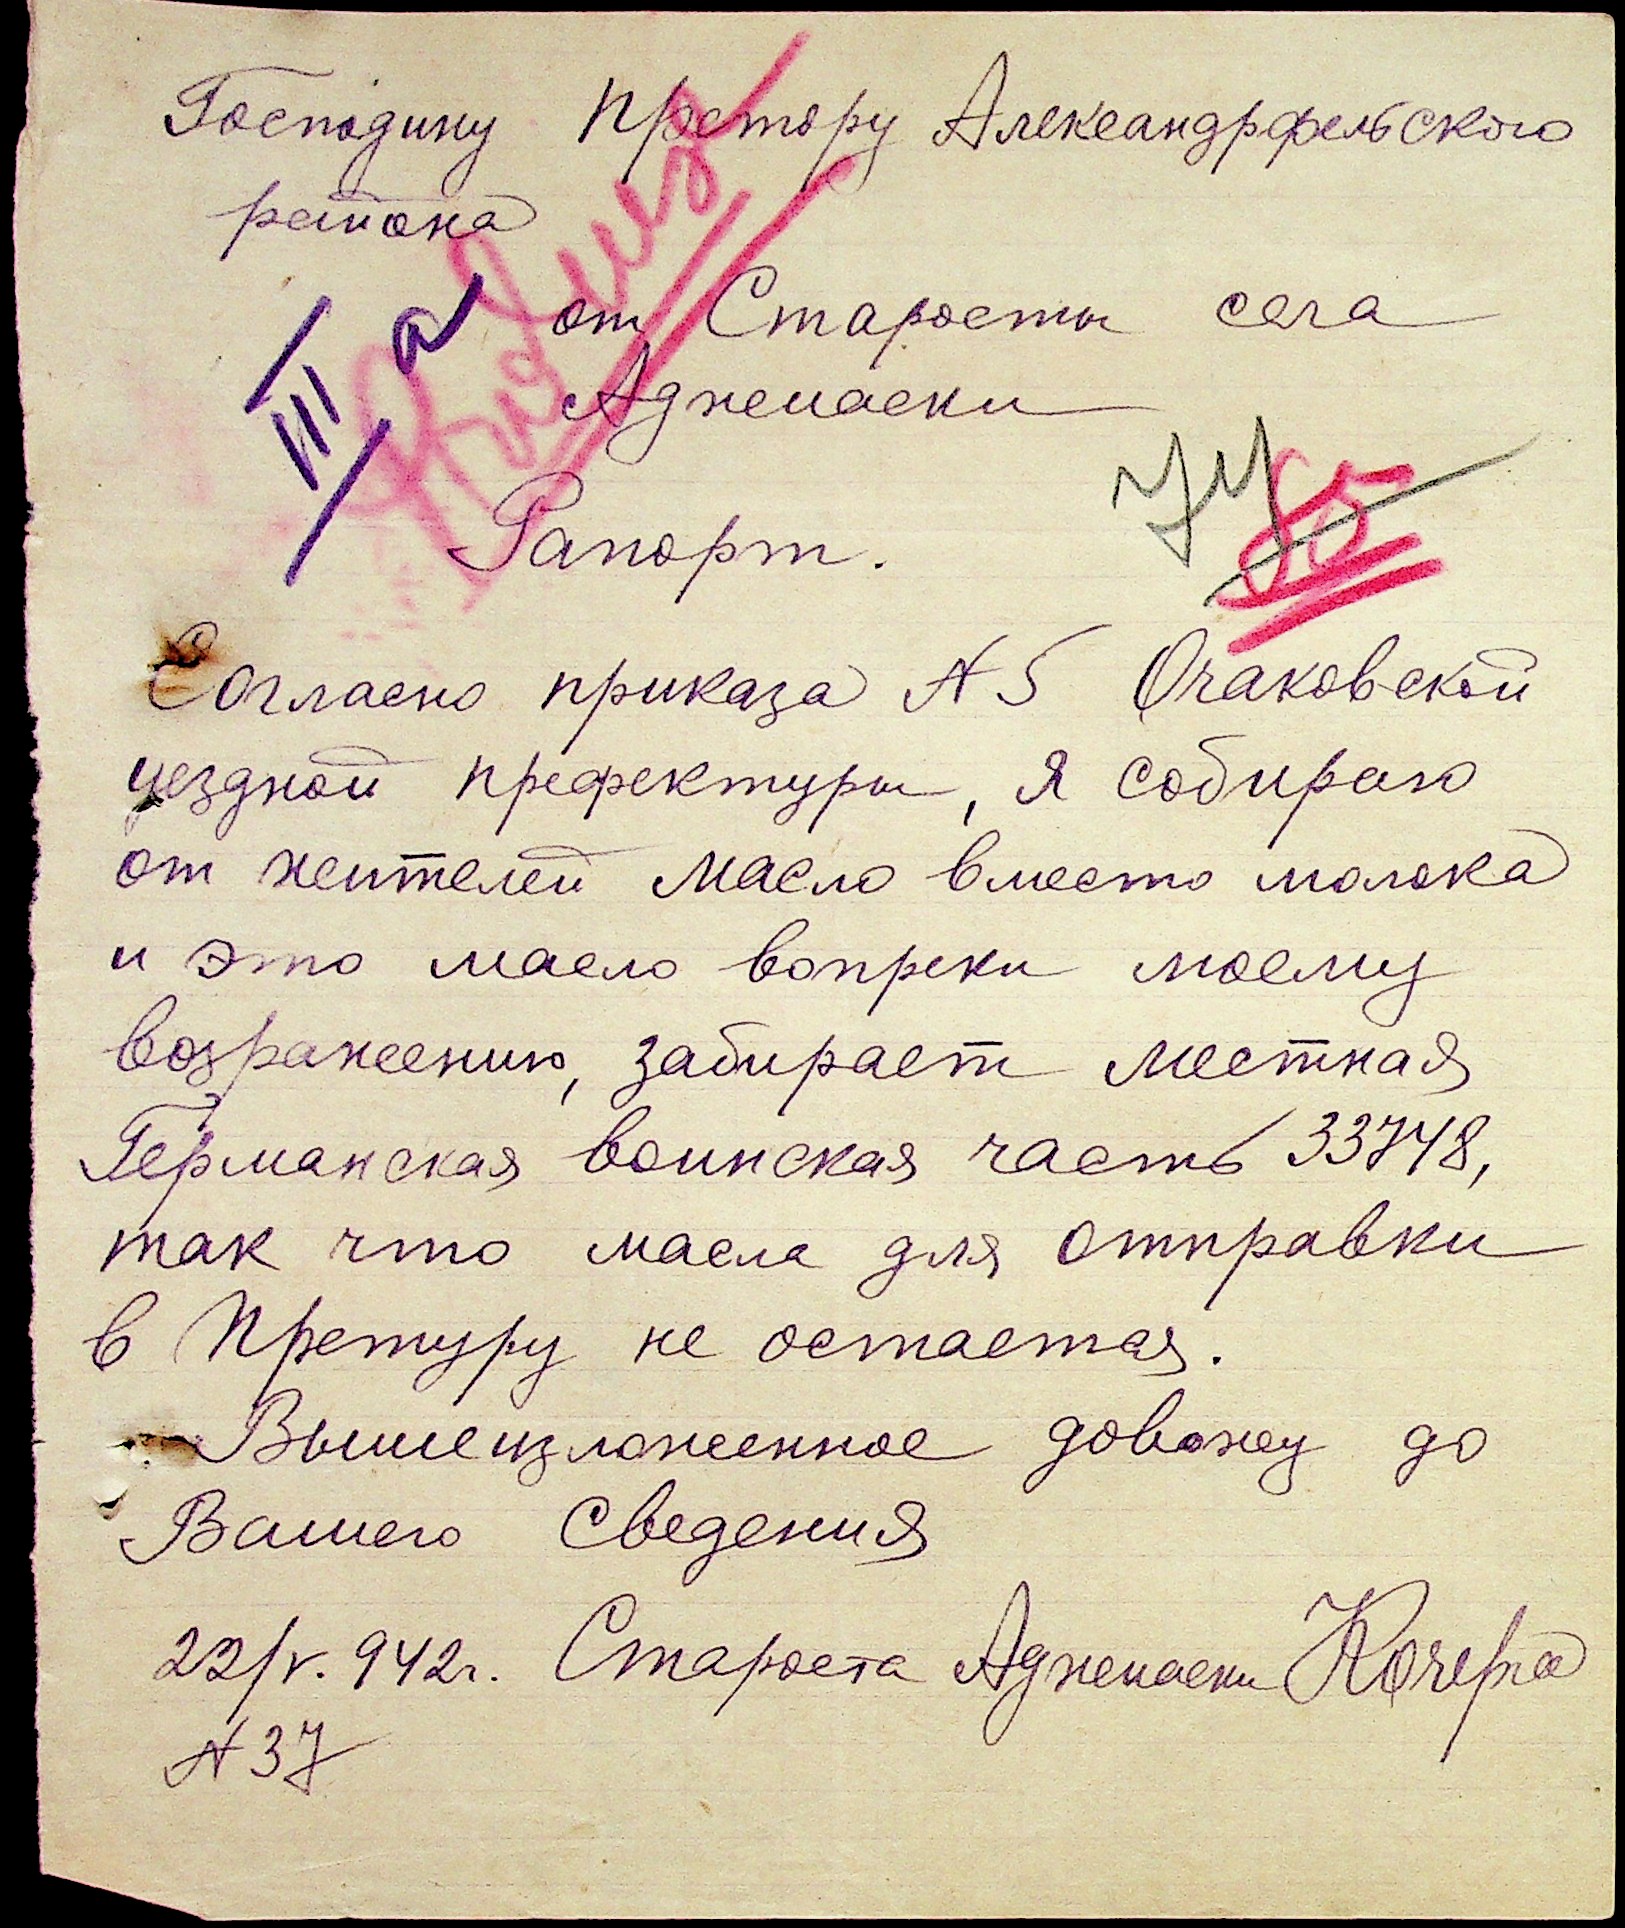 Господину Претору Александрфельского
района
от Старосты села
Аджемаски
III а
Рапорт.
74
85
Согласно приказа N 5 Очаковской
уездной префектуры, я собираю
от жителей масло вместо молока
и это масло вопреки моему
возражению, забирает местная
Германская воинская часть 33748,
так что масла для отправки
в Претуру не остается.
Вышеизложенное довожу до
Вашего сведения
22/V. 942г. Староста Аджемаски Кочерга
N 37